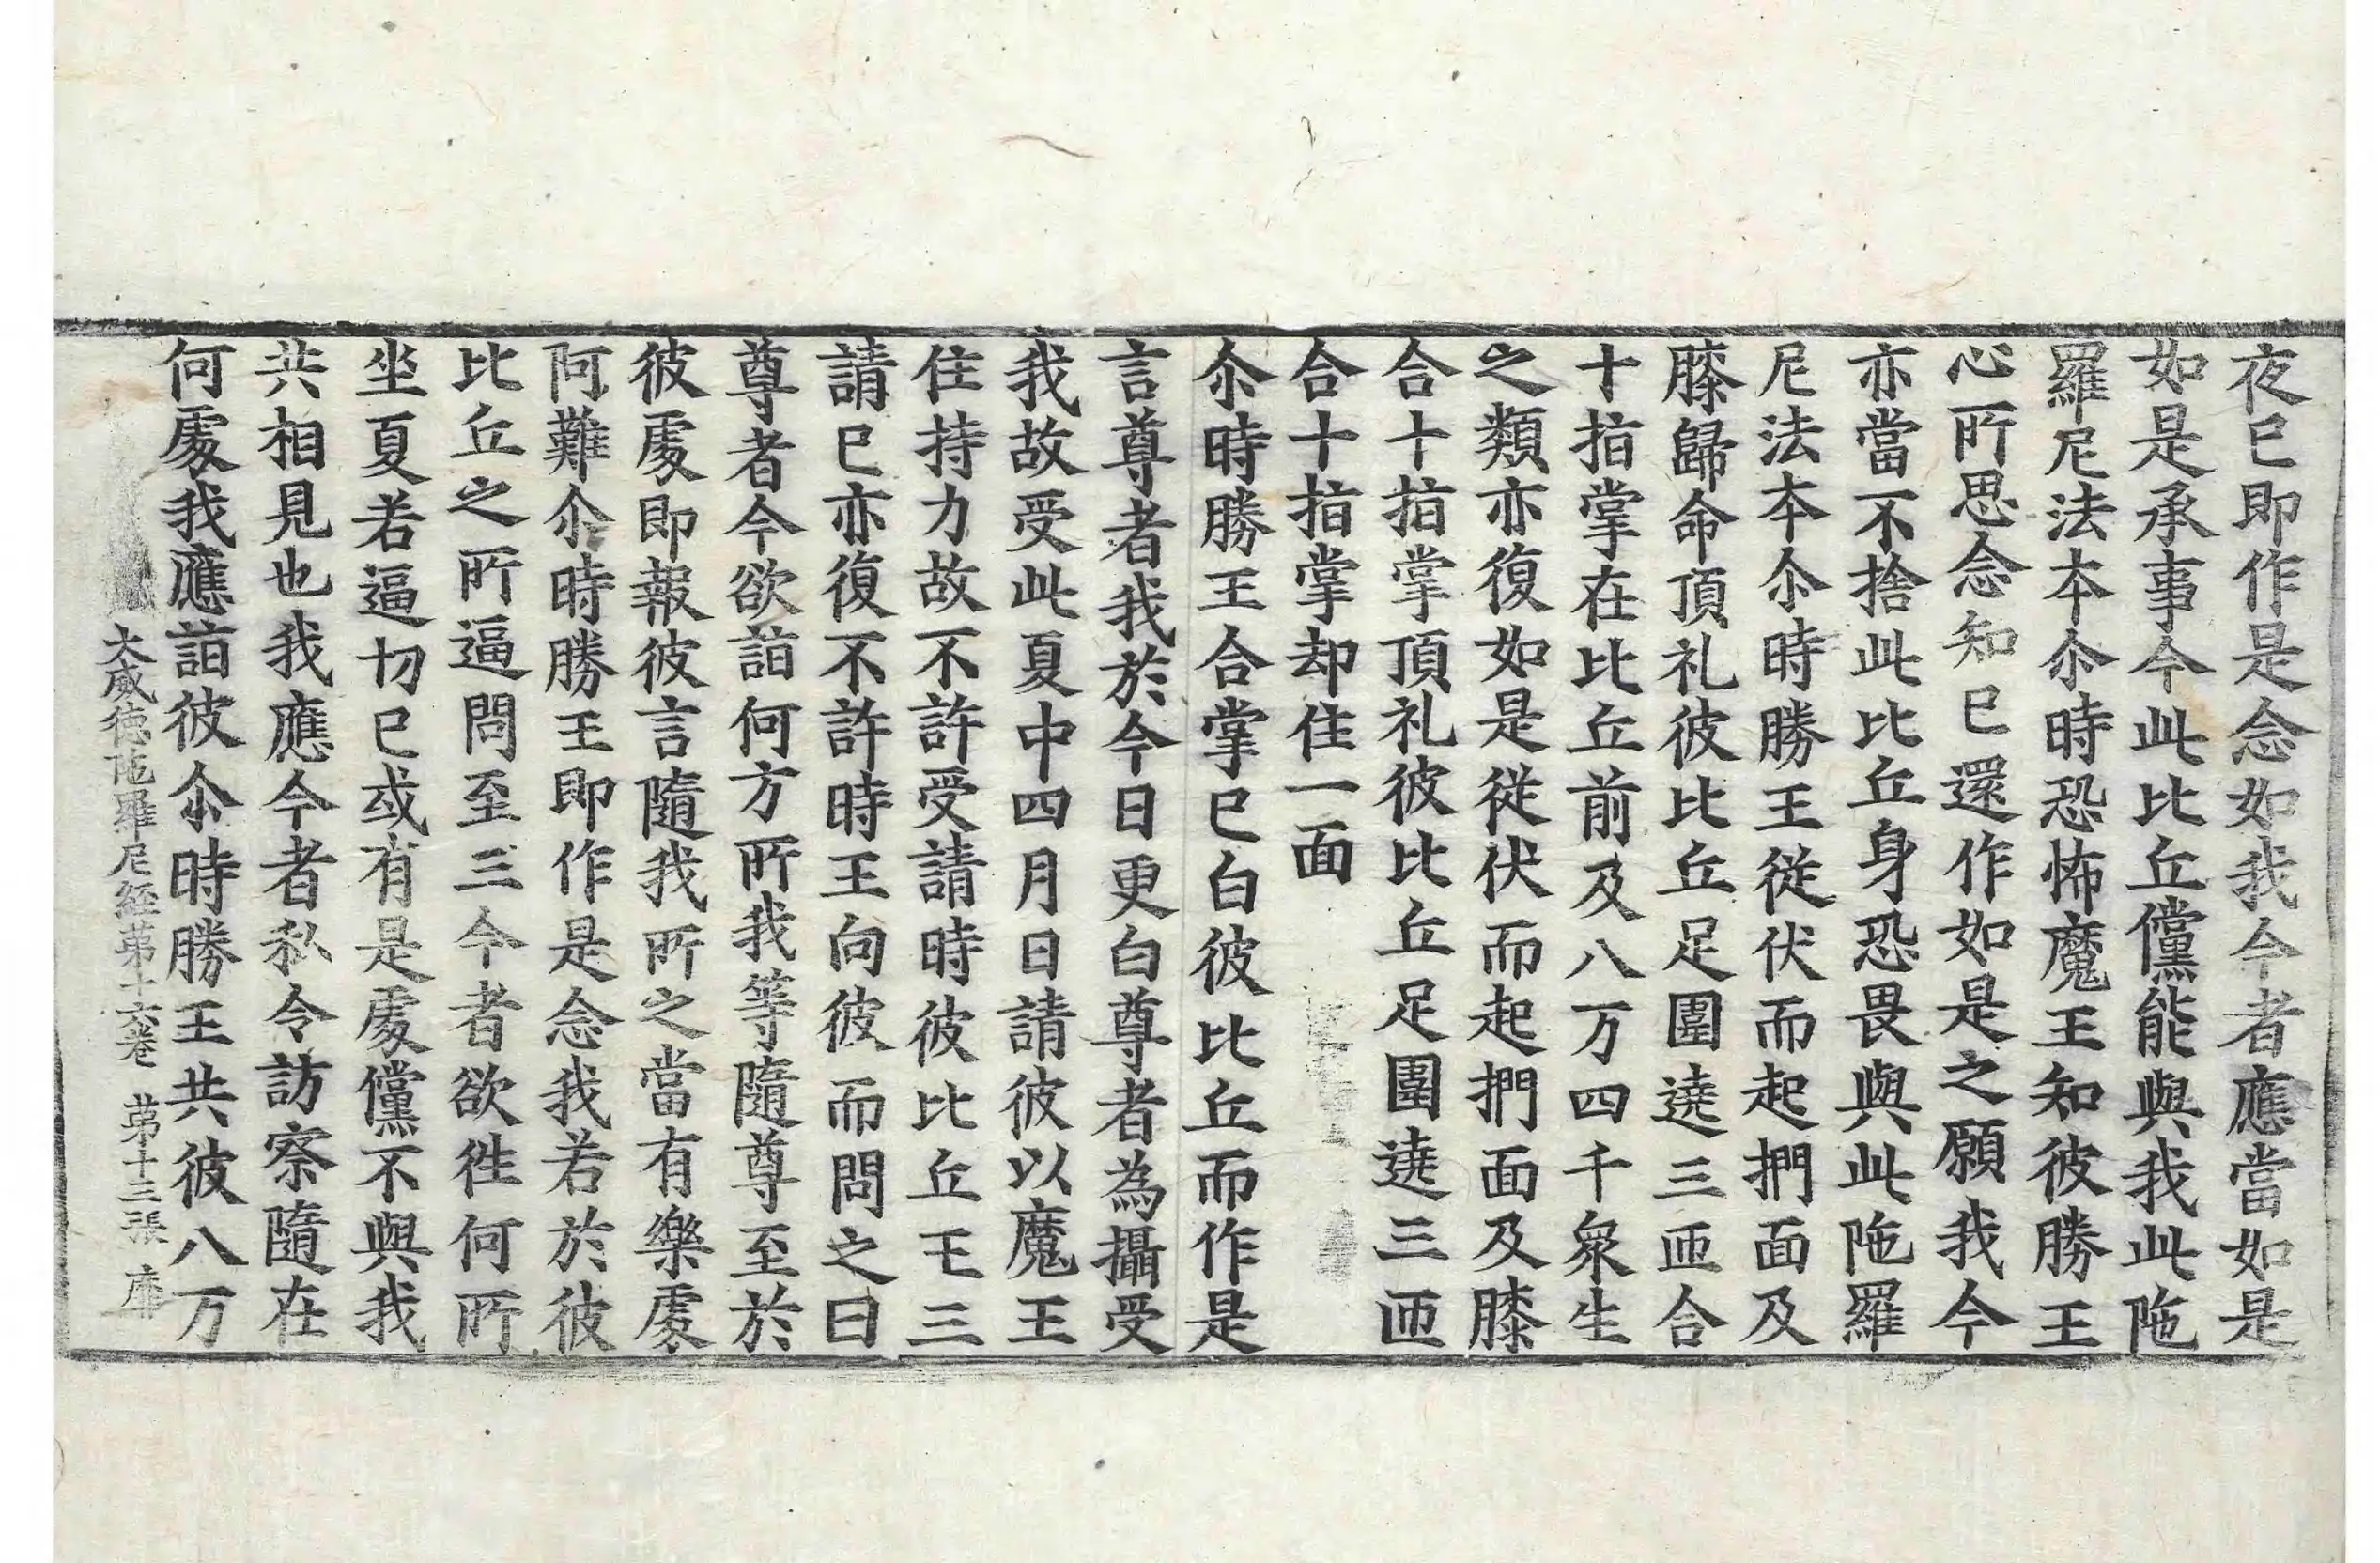 夜已即作是念如我今者應當如是
如是承事今此比丘儻能與我此陁
羅尼法本尒時恐怖魔王知彼勝王
心所思念知已還作如是之願我今
亦當不捨此比丘身恐畏與此陁羅
尼法本尒時勝王從伏而起捫面及
膝歸命頂礼彼比丘足圍遶三匝合
十指掌在比丘前及八万四千衆生
之類亦復如是從伏而起捫面及膝
合十指掌頂礼彼比丘足圍遶三匝
合十指掌却住一面
尒時勝王合掌已白彼比丘而作是
言尊者我於今日更白尊者為攝受
我故受此夏中四月日請彼以魔王
住持力故不許受請時彼比丘王三
請已亦復不許時王向彼而問之曰
尊者今欲詣何方所我等隨尊至於
彼處即報彼言隨我所之當有樂處
阿難尒時勝王即作是念我若於彼
比丘之所逼問至三今者欲徃何所
坐夏若逼切已或有是處儻不與我
共相見也我應今者私令訪察隨在
何處我應詣彼尒時勝王共彼八万
大威德陁羅尼經苐十六卷 苐十三張 席